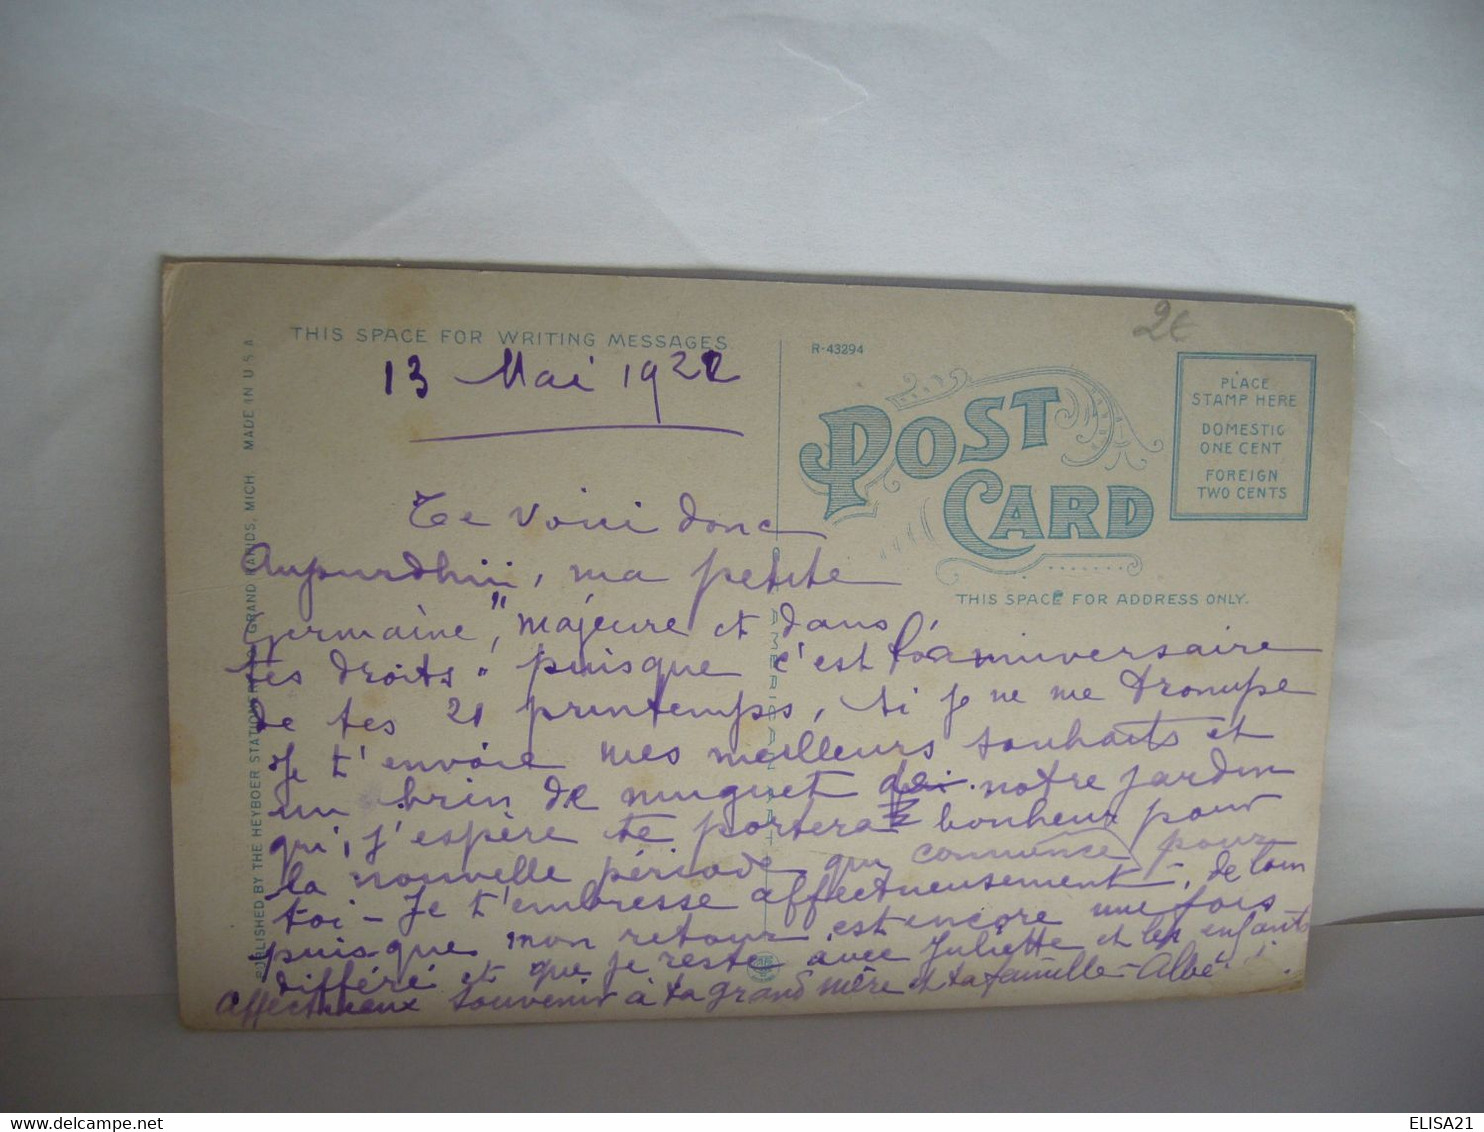 THIS SPACE FOR WRITING MESSAGES
13 Mai 1922
Te voici donc
Aujourdhui, ma petite
Germaine, "majeure et dans
tes droits" puisque c'est l'anniversaire
de tes 21 printemps, si je ne me trompe
Je t'envoie mes meilleurs souhaits et
un brin de muguet de notre jardin
qui, j'espère te portera bonheur pour
la nouvelle période qui commence pour
toi - Je t'embrasse affectueusement, de loin
puisque mon retour est encore une fois
différé et que je reste avec Juliette et les enfants
affectueux souvenir à ta grand mère et ta famille -
PUBLISHED BY THE HEYBOER STATIONERY CO. GRAND RAPIDS, MICH MADE IN U S A
R-43294
2€
POST CARD
PLACE
STAMP HERE
DOMESTIC
ONE CENT
FOREIGN
TWO CENTS
THIS SPACE FOR ADDRESS ONLY.
delcampe.net
ELISA21